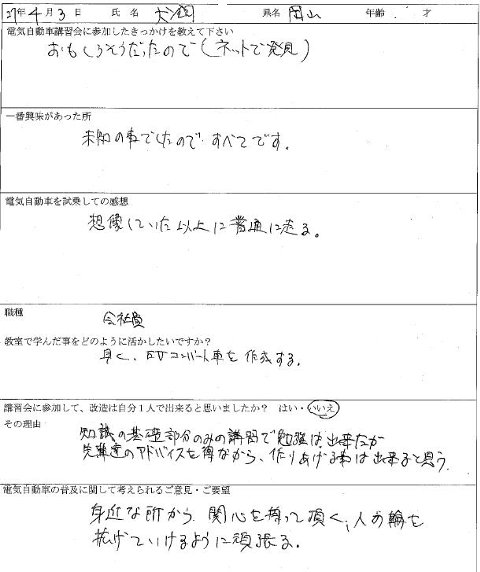 27年 4月 3日 氏名 県名 岡山 年齢 才
電気自動車講習会に参加したきっかけを教えて下さい
おもしろそうだったので(ネットで発見)
一番興味があった所
未知の事でしたので すべてです。
電気自動車を試乗しての感想
想像していた以上に普通に走る。
職種 会社員
教室で学んだ事をどのように活かしたいですか?
早く、EVコンバート車を作成する。
講習会に参加して、改造は自分1人で出来ると思いましたか? はい・いいえ
その理由
知識の基礎部分のみの講習で勉強は出来たが
先輩達のアドバイスを得ながら、作りあげる事は出来ると思う。
電気自動車の普及に関して考えられるご意見・ご要望
身近な所から 関心を持って頂く、人の輪を
拡げていけるように頑張る。